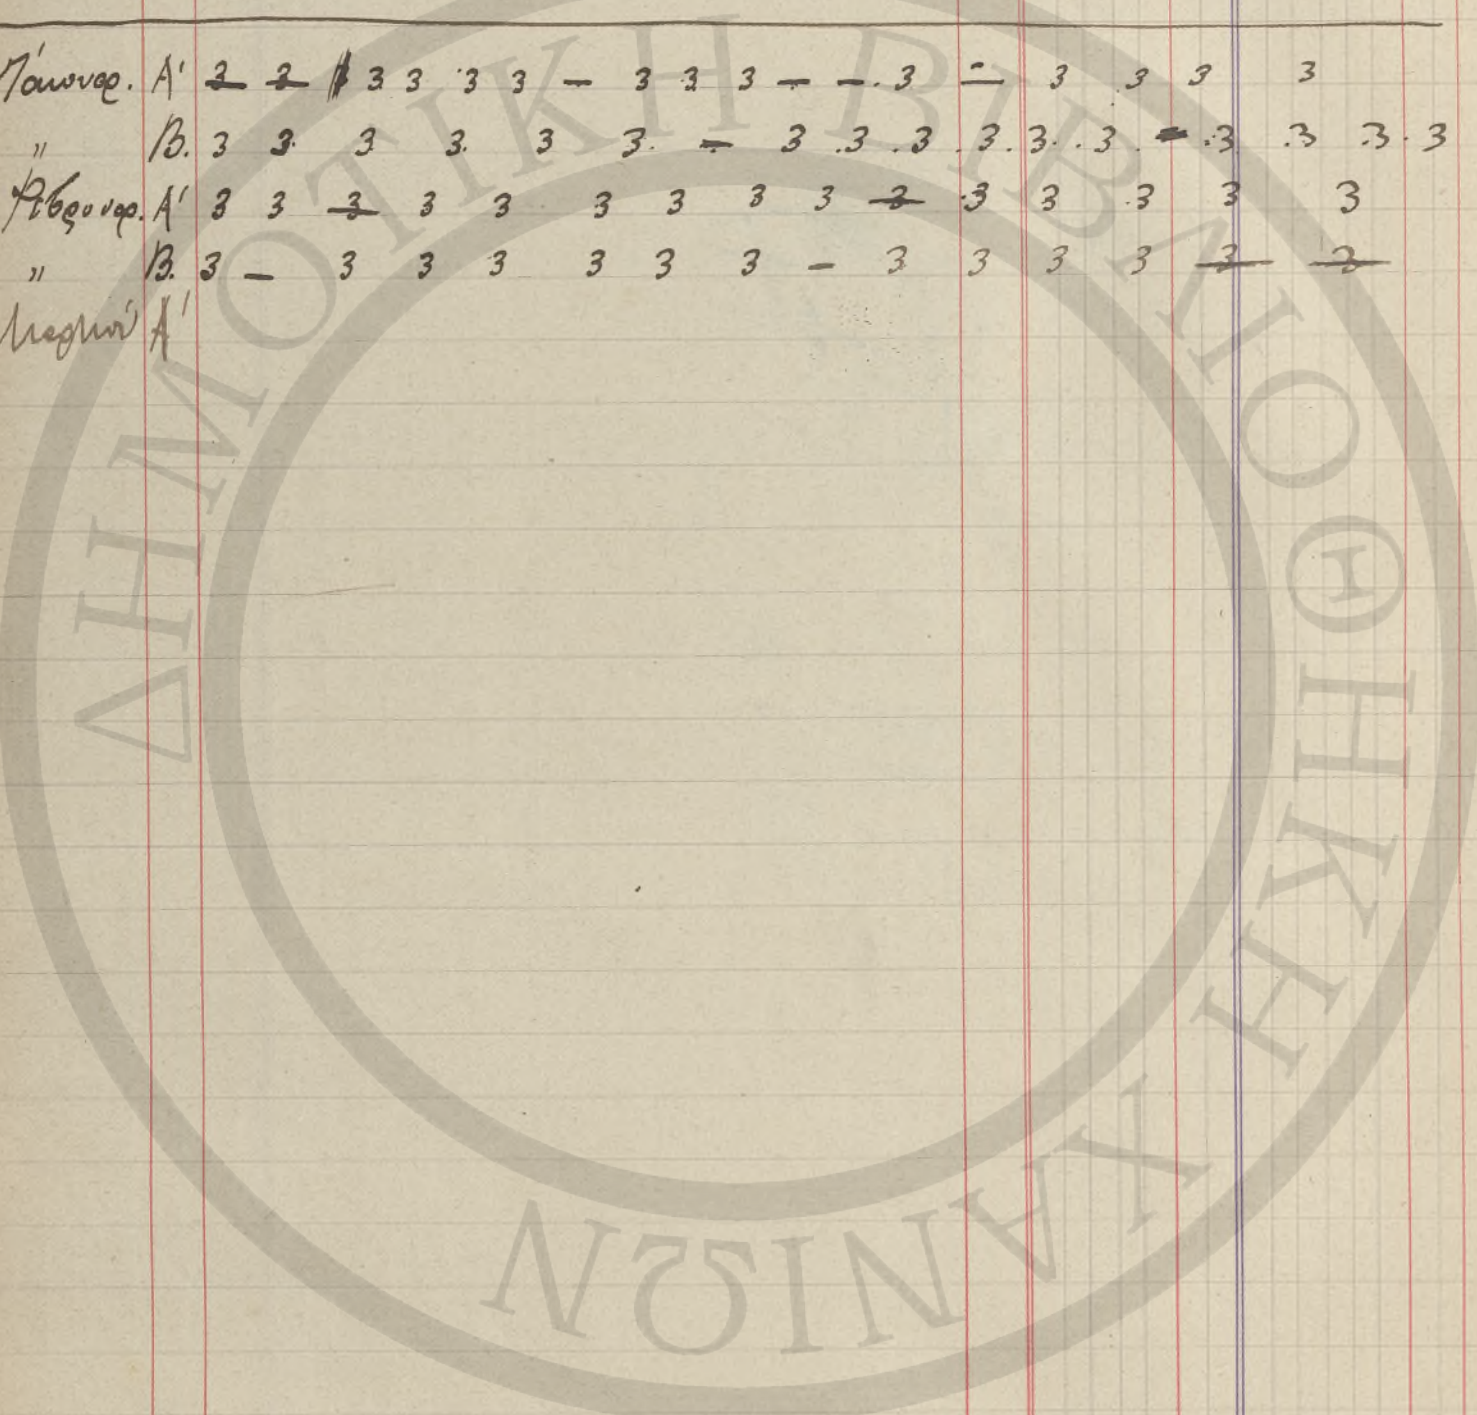 Ἰάνουαρ. Α' 3 3 3 3 3 3 – 3 3 3 – – . 3 – 3 3 3 3
" Β. 3 3 3 3. 3 3. – 3 . 3 . 3 . 3 . 3 . . 3 . – . 3 . 3 . 3 . 3
Φεβρουαρ. Α' 3 3 3 3 3 3 3 3 3 3 3 3 3 3 3
" Β. 3 – 3 3 3 3 3 3 – 3 3 3 3 3 3
Α'
ΔΗΜΟΤΙΚΗ ΒΙΒΛΙΟΘΗΚΗ ΧΑΝΙΩΝ